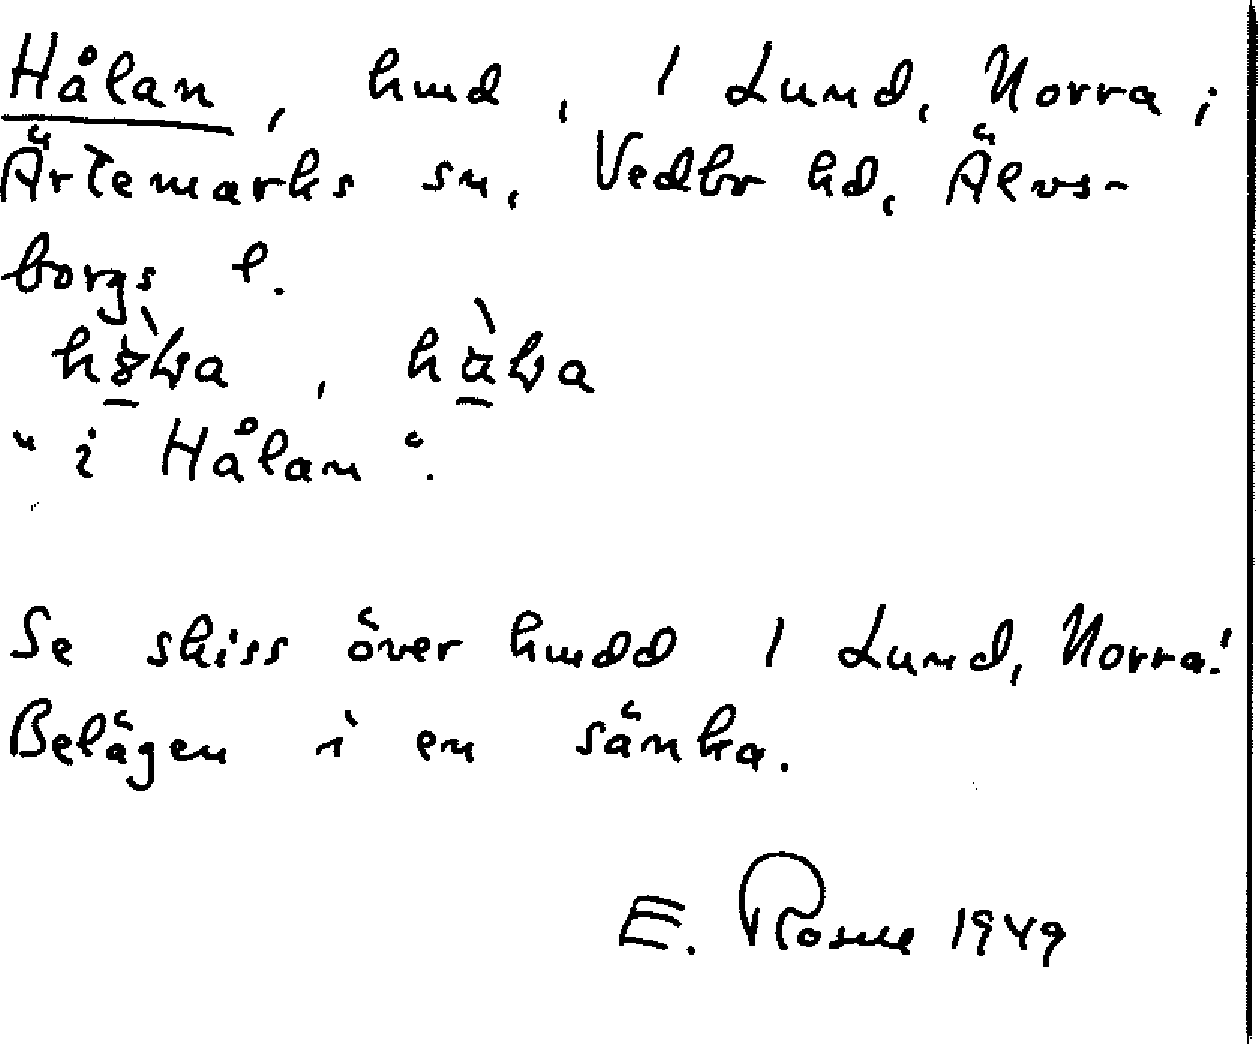 Hålan, hmd, 1 Lund, Norra i
Ärtemarks sn, Vedbo hd, Älvs-
borgs l.
"i Hålan".
Se skiss över hmdd 1 Lund, Norra!
Belägen i en sänka.
E. Rosne 1949